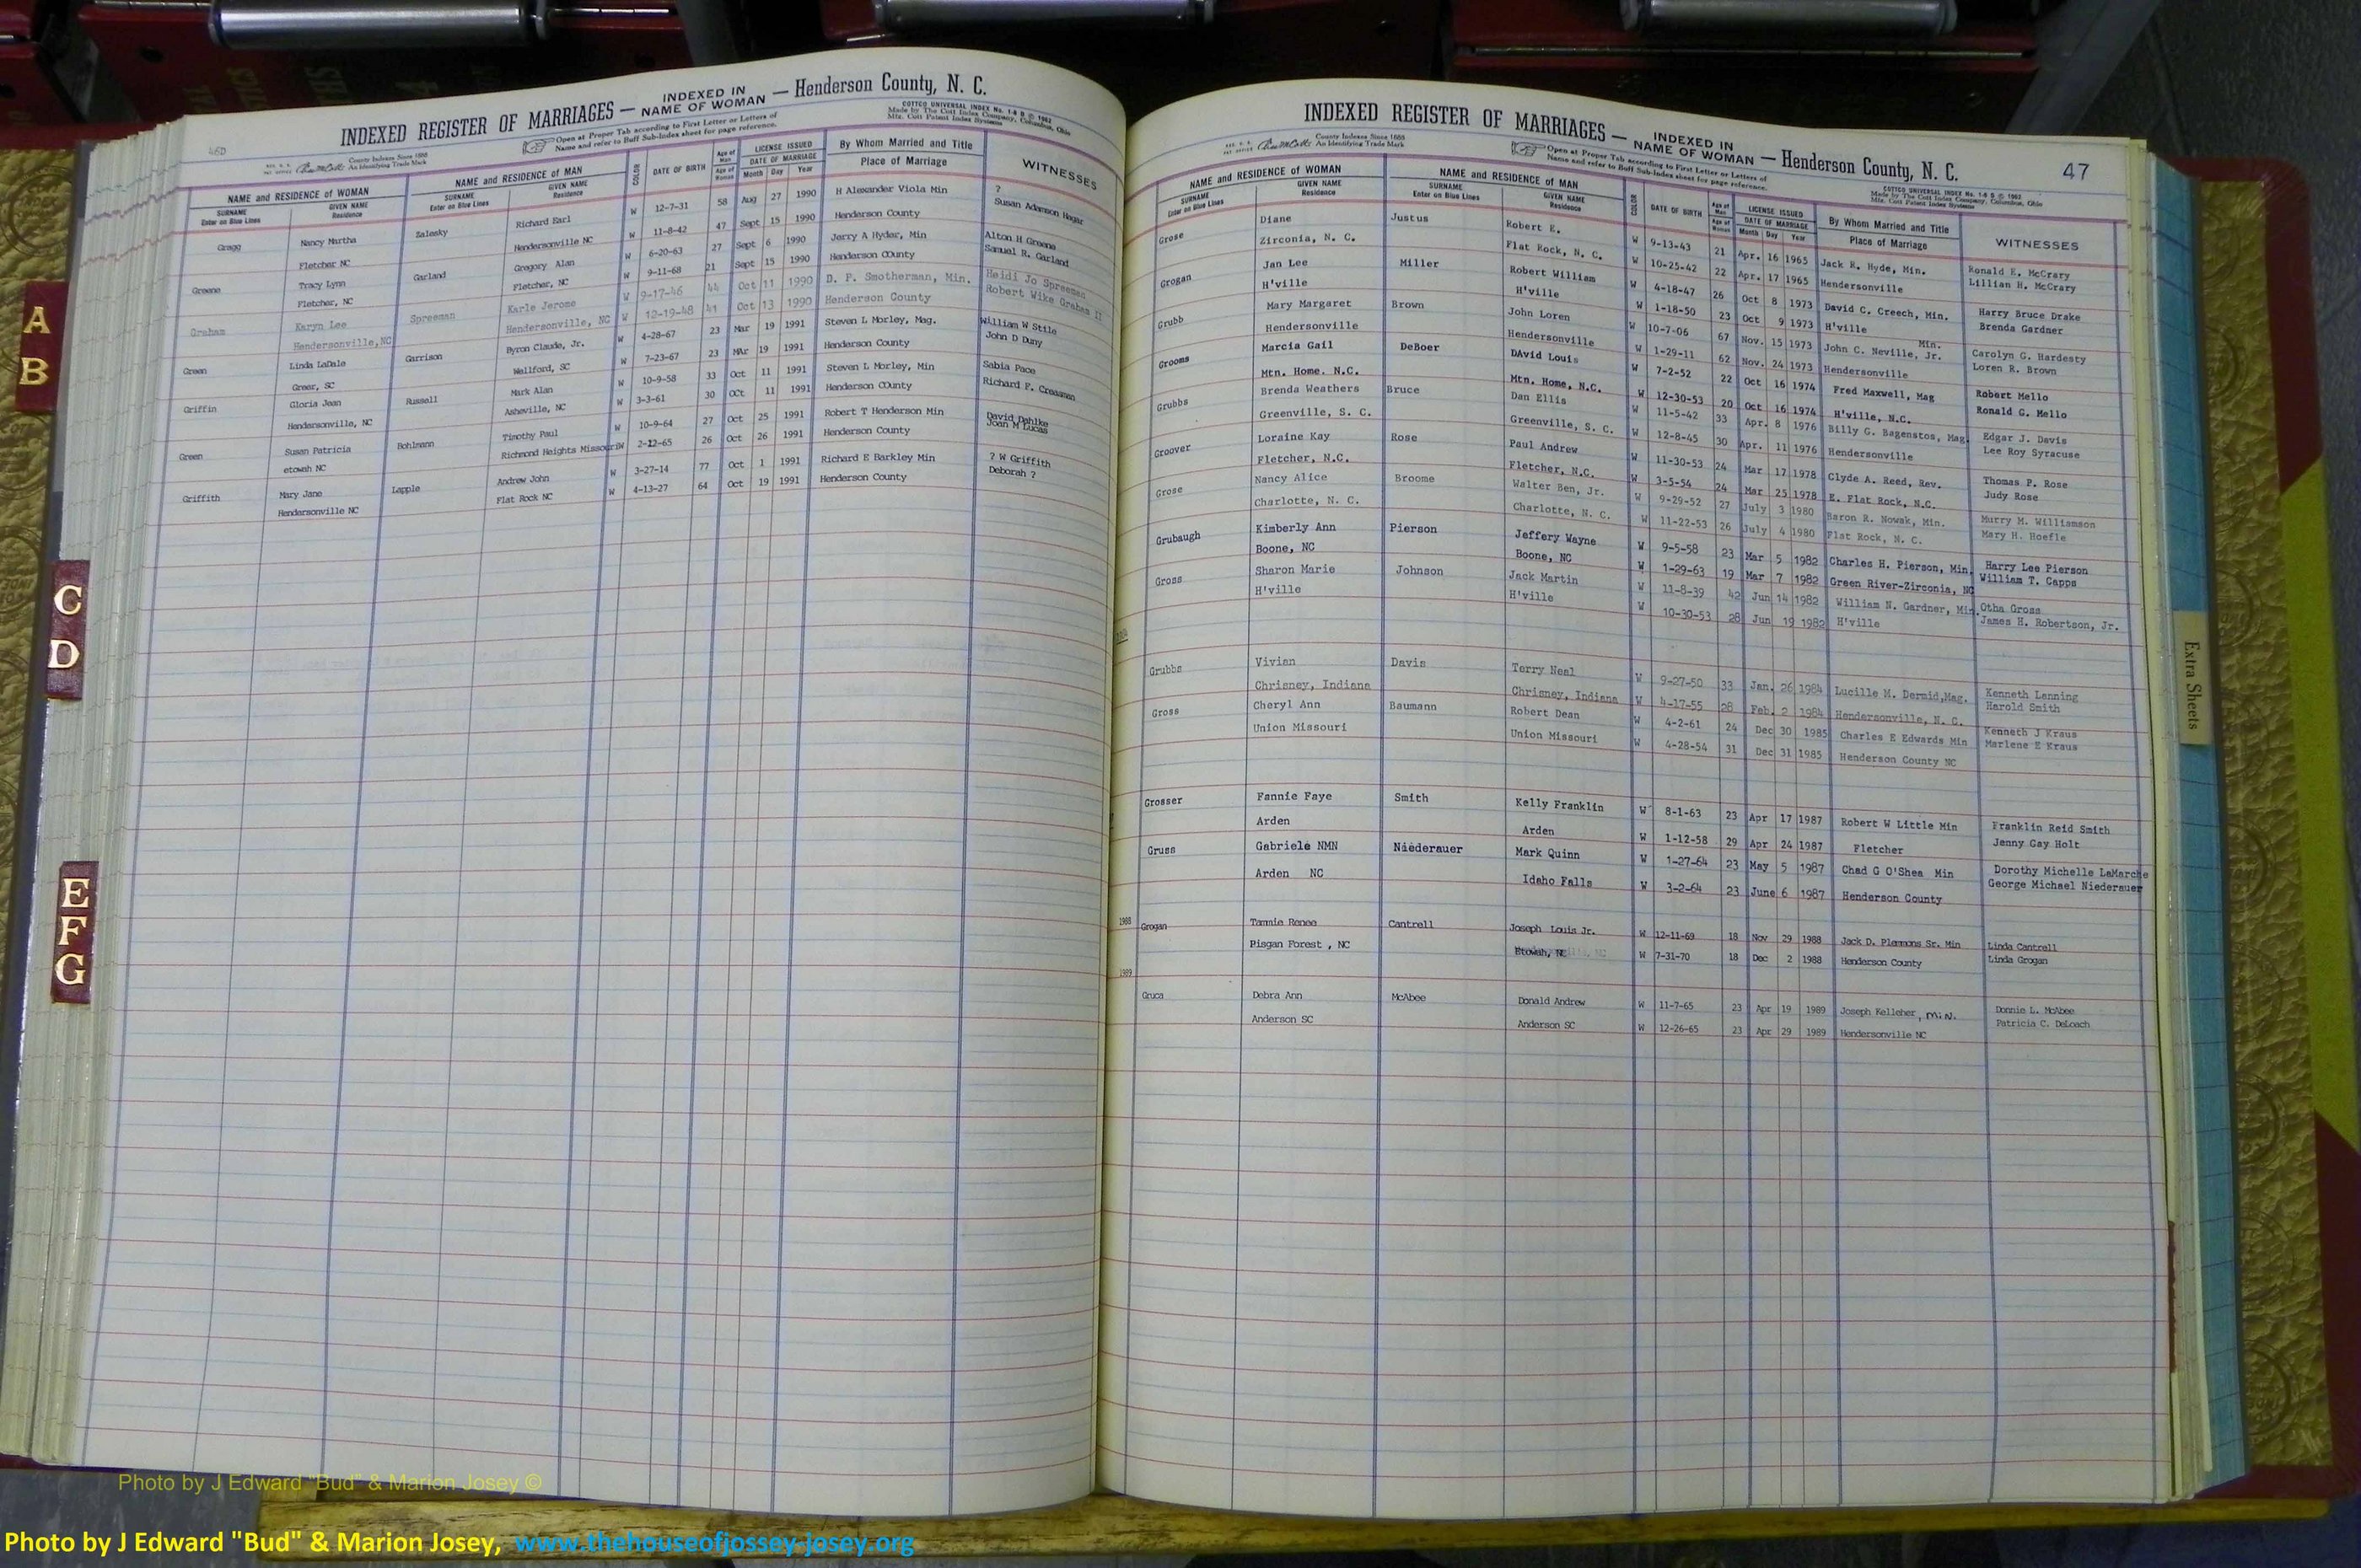 46D
INDEXED REGISTER OF MARRIAGES — INDEXED IN NAME OF WOMAN — Henderson County, N. C.
County Indexes Since 1888
An Identifying Trade Mark
Open at Proper Tab according to First Letter or Letters of
Name and refer to Buff Sub-Index sheet for page reference.
COTTCO UNIVERSAL INDEX No. 1-8 B © 1962
Made by The Cott Index Company, Columbus, Ohio
Mfg. Cott Patent Index Systems
NAME and RESIDENCE of WOMAN NAME and RESIDENCE of MAN COLOR DATE OF BIRTH Age of Man LICENSE ISSUED By Whom Married and Title WITNESSES
SURNAME GIVEN NAME SURNAME GIVEN NAME Age of Woman DATE OF MARRIAGE Place of Marriage
Enter on Blue Lines Residence Enter on Blue Lines Residence Month Day Year
Gragg Nancy Martha Zalesky Richard Earl W 12-7-31 58 Aug 27 1990 H Alexander Viola Min ?
Fletcher NC Hendersonville NC W 11-8-42 47 Sept 15 1990 Henderson County Susan Adamson Hagar
Greene Tracy Lynn Garland Gregory Alan W 6-20-63 27 Sept 6 1990 Jerry A Hyder, Min Alton H Greene
Fletcher, NC Fletcher, NC W 9-11-68 21 Sept 15 1990 Henderson COunty Samuel R. Garland
Graham Karyn Lee Spreeman Karle Jerome W 9-17-46 44 Oct 11 1990 D. P. Smotherman, Min. Heidi Jo Spreeman
Hendersonville,NC Hendersonville, NC W 12-19-48 41 Oct 13 1990 Henderson County Robert Wike Graham II
Green Linda LaDale Garrison Byron Claude, Jr. W 4-28-67 23 Mar 19 1991 Steven L Morley, Mag. William W Stile
Greer, SC Wellford, SC W 7-23-67 23 MAr 19 1991 Henderson County John D Duny
Griffin Gloria Jean Russell Mark Alan W 10-9-58 33 Oct 11 1991 Steven L Morley, Min Sabia Pace
Hendersonville, NC Asheville, NC W 3-3-61 30 OCt 11 1991 Henderson COunty Richard F. Creasman
Green Susan Patricia Bohlmann Timothy Paul W 10-9-64 27 Oct 25 1991 Robert T Henderson Min David Dahlke
etowah NC Richmond Heights Missouri W 2-12-65 26 Oct 26 1991 Henderson County Joan M Lucas
Griffith Mary Jane Lapple Andrew John W 3-27-14 77 Oct 1 1991 Richard E Barkley Min ? W Griffith
Hendersonville NC Flat Rock NC W 4-13-27 64 Oct 19 1991 Henderson County Deborah ?
A
B
C
D
E
F
G
47
INDEXED REGISTER OF MARRIAGES — INDEXED IN NAME OF WOMAN — Henderson County, N. C.
County Indexes Since 1888
An Identifying Trade Mark
Open at Proper Tab according to First Letter or Letters of
Name and refer to Buff Sub-Index sheet for page reference.
COTTCO UNIVERSAL INDEX No. 1-8 B © 1962
Made by The Cott Index Company, Columbus, Ohio
Mfg. Cott Patent Index Systems
NAME and RESIDENCE of WOMAN NAME and RESIDENCE of MAN COLOR DATE OF BIRTH Age of Man LICENSE ISSUED By Whom Married and Title WITNESSES
SURNAME GIVEN NAME SURNAME GIVEN NAME Age of Woman DATE OF MARRIAGE Place of Marriage
Enter on Blue Lines Residence Enter on Blue Lines Residence Month Day Year
Grose Diane Justus Robert E. W 9-13-43 21 Apr. 16 1965 Jack R. Hyde, Min. Ronald E. McCrary
Zirconia, N. C. Flat Rock, N. C. W 10-25-42 22 Apr. 17 1965 Hendersonville Lillian H. McCrary
Grogan Jan Lee Miller Robert William W 4-18-47 26 Oct 8 1973 David C. Creech, Min. Harry Bruce Drake
H'ville H'ville W 1-18-50 23 Oct 9 1973 H'ville Brenda Gardner
Grubb Mary Margaret Brown John Loren W 10-7-06 67 Nov. 15 1973 John C. Neville, Jr. Min. Carolyn G. Hardesty
Hendersonville Hendersonville W 1-29-11 62 Nov. 24 1973 Hendersonville Loren R. Brown
Grooms Marcia Gail DeBoer DAvid Louis W 7-2-52 22 Oct 16 1974 Fred Maxwell, Mag Robert Mello
Mtn. Home. N.C. Mtn. Home, N.C. W 12-30-53 20 Oct 16 1974 H'ville, N.C. Ronald G. Mello
Grubbs Brenda Weathers Bruce Dan Ellis W 11-5-42 33 Apr. 8 1976 Billy G. Bagenstos, Mag. Edgar J. Davis
Greenville, S. C. Greenville, S. C. W 12-8-45 30 Apr. 11 1976 Hendersonville Lee Roy Syracuse
Groover Loraine Kay Rose Paul Andrew W 11-30-53 24 Mar 17 1978 Clyde A. Reed, Rev. Thomas P. Rose
Fletcher, N.C. Fletcher, N.C. W 3-5-54 24 Mar 25 1978 E. Flat Rock, N.C. Judy Rose
Grose Nancy Alice Broome Walter Ben, Jr. W 9-29-52 27 July 3 1980 Baron R. Nowak, Min. Murry M. Williamson
Charlotte, N. C. Charlotte, N. C. W 11-22-53 26 July 4 1980 Flat Rock, N. C. Mary H. Hoefle
Grubaugh Kimberly Ann Pierson Jeffery Wayne W 9-5-58 23 Mar 5 1982 Charles H. Pierson, Min. Harry Lee Pierson
Boone, NC Boone, NC W 1-29-63 19 Mar 7 1982 Green River-Zirconia, NC William T. Capps
Gross Sharon Marie Johnson Jack Martin W 11-8-39 42 Jun 14 1982 William N. Gardner, Min. Otha Gross
H'ville H'ville W 10-30-53 28 Jun 19 1982 H'ville James H. Robertson, Jr.
Grubbs Vivian Davis Terry Neal W 9-27-50 33 Jan. 26 1984 Lucille M. Dermid,Mag. Kenneth Lanning
Chrisney, Indiana Chrisney, Indiana W 4-17-55 28 Feb. 2 1984 Hendersonville, N. C. Harold Smith
Gross Cheryl Ann Baumann Robert Dean W 4-2-61 24 Dec 30 1985 Charles E Edwards Min Kenneth J Kraus
Union Missouri Union Missouri W 4-28-54 31 Dec 31 1985 Henderson County NC Marlene E Kraus
Grosser Fannie Faye Smith Kelly Franklin W 8-1-63 23 Apr 17 1987 Robert W Little Min Franklin Reid Smith
Arden Arden W 1-12-58 29 Apr 24 1987 Fletcher Jenny Gay Holt
Gruss Gabriele NMN Niederauer Mark Quinn W 1-27-64 23 May 5 1987 Chad G O'Shea Min Dorothy Michelle LaMarche
Arden NC Idaho Falls W 3-2-64 23 June 6 1987 Henderson County George Michael Niederauer
1988
Grogan Tammie Renee Cantrell Joseph Louis Jr. W 12-11-69 18 Nov 29 1988 Jack D. Plemmons Sr. Min Linda Cantrell
Pisgan Forest , NC Etowah, NC W 7-31-70 18 Dec 2 1988 Henderson County Linda Grogan
1989
Gruca Debra Ann McAbee Donald Andrew W 11-7-65 23 Apr 19 1989 Joseph Kelleher, Min. Donnie L. McAbee
Anderson SC Anderson SC W 12-26-65 23 Apr 29 1989 Hendersonville NC Patricia C. DeLoach
Extra Sheets
Photo by J Edward "Bud" & Marion Josey ©
Photo by J Edward "Bud" & Marion Josey, www.thehouseofjossey-josey.org